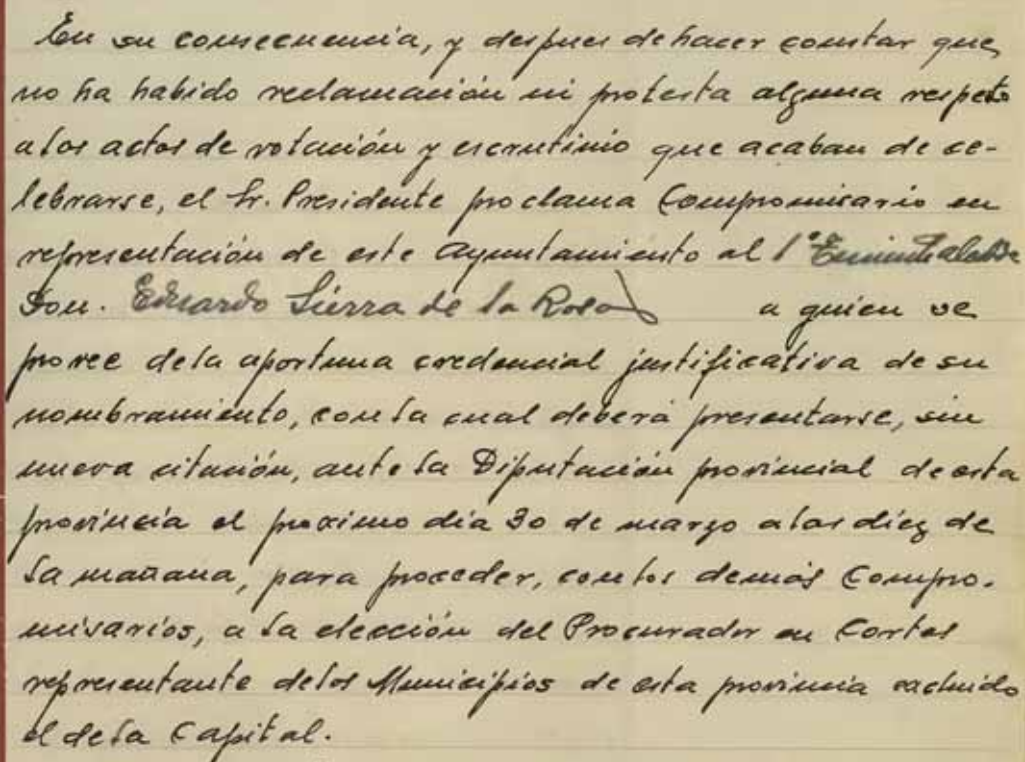 En su consecuencia, y despues de hacer constar que
no ha habido reclamación ni protesta alguna respeto
a los actos de votación y escrutinio que acaban de ce-
lebrarse, el Sr. Presidente proclama Compromisario en
representación de este Ayuntamiento al 1º Teniente alcalde
Don. Eduardo Sierra de la Rosa a quien se
provee de la aportuna credencial justificativa de su
nombramiento, con la cual deberá presentarse, sin
nueva citación, ante la Diputación provincial de esta
provincia el proximo día 30 de marzo a las diez de
la mañana, para proceder, con los demás Compro-
misarios, a la elección del Procurador en Cortes
representante de los Municipios de esta provincia excluido
el de la Capital.